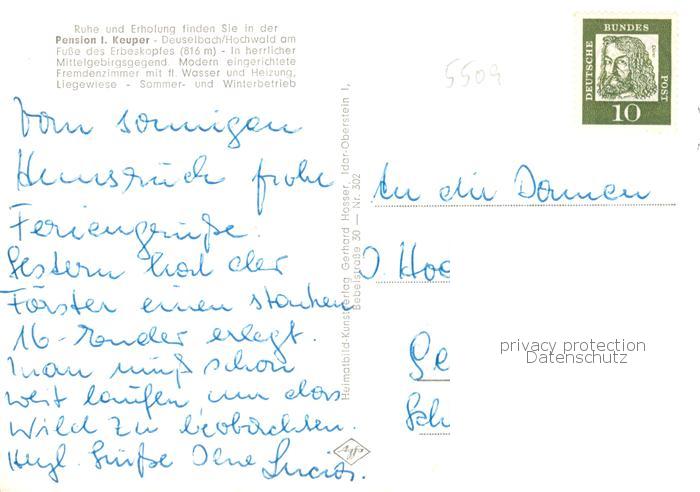 Ruhe und Erholung finden Sie in der
Pension I. Keuper - Deuselbach/Hochwald am
Fuße des Erbeskopfes (816 m) - In herrlicher
Mittelgebirgsgegend. Modern eingerichtete
Fremdenzimmer mit fl. Wasser und Heizung,
Liegewiese - Sommer- und Winterbetrieb
5509
DEUTSCHE BUNDES POST
10
Vom sonnigen
Hunsrück frohe
Feriengrüße.
Gestern hat der
Förster einen starken
16-Ender erlegt.
Man muß schon
weit laufen um das
Wild zu beobachten.
Herzl. Grüße Ihre Lucia.
Heimatbild-Kunstverlag Gerhard Hosser, Idar-Oberstein 1,
Bebelstraße 30 — Nr. 302
Agfa
An die Damen
J. Hoe
Ge
Sch
privacy protection
Datenschutz